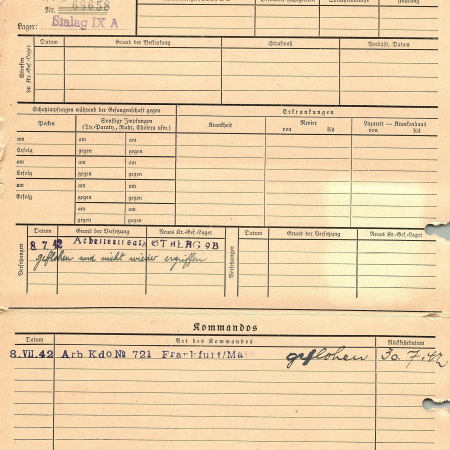 Nr. 69658
Lager: Stalag IX A
Strafen im Kr.-Gef.-Lager
Datum Grund der Bestrafung Strafmaß Verbüßt, Datum
Schutzimpfungen während der Gefangenschaft gegen Erkrankungen
Pocken Sonstige Impfungen (Ty.-Paraty., Ruhr, Cholera usw.) Krankheit Revier von bis Lazarett — Krankenhaus von bis
am am am
Erfolg gegen gegen
am am am
Erfolg gegen gegen
am am am
Erfolg gegen gegen
am am am
Erfolg gegen gegen
am am
gegen gegen
Versetzungen Datum Grund der Versetzung Neues Kr.-Gef.-Lager Versetzungen Datum Grund der Versetzung Neues Kr.-Gef.-Lager
8. 7. 42 Arbeitseinsatz STALAG 9B
geflohen und nicht wieder ergriffen
Kommandos
Datum Art des Kommandos Rückkehrdatum
8. VII. 42 Arb Kdo No 721 Frankfurt/Main geflohen 30. 7. 42